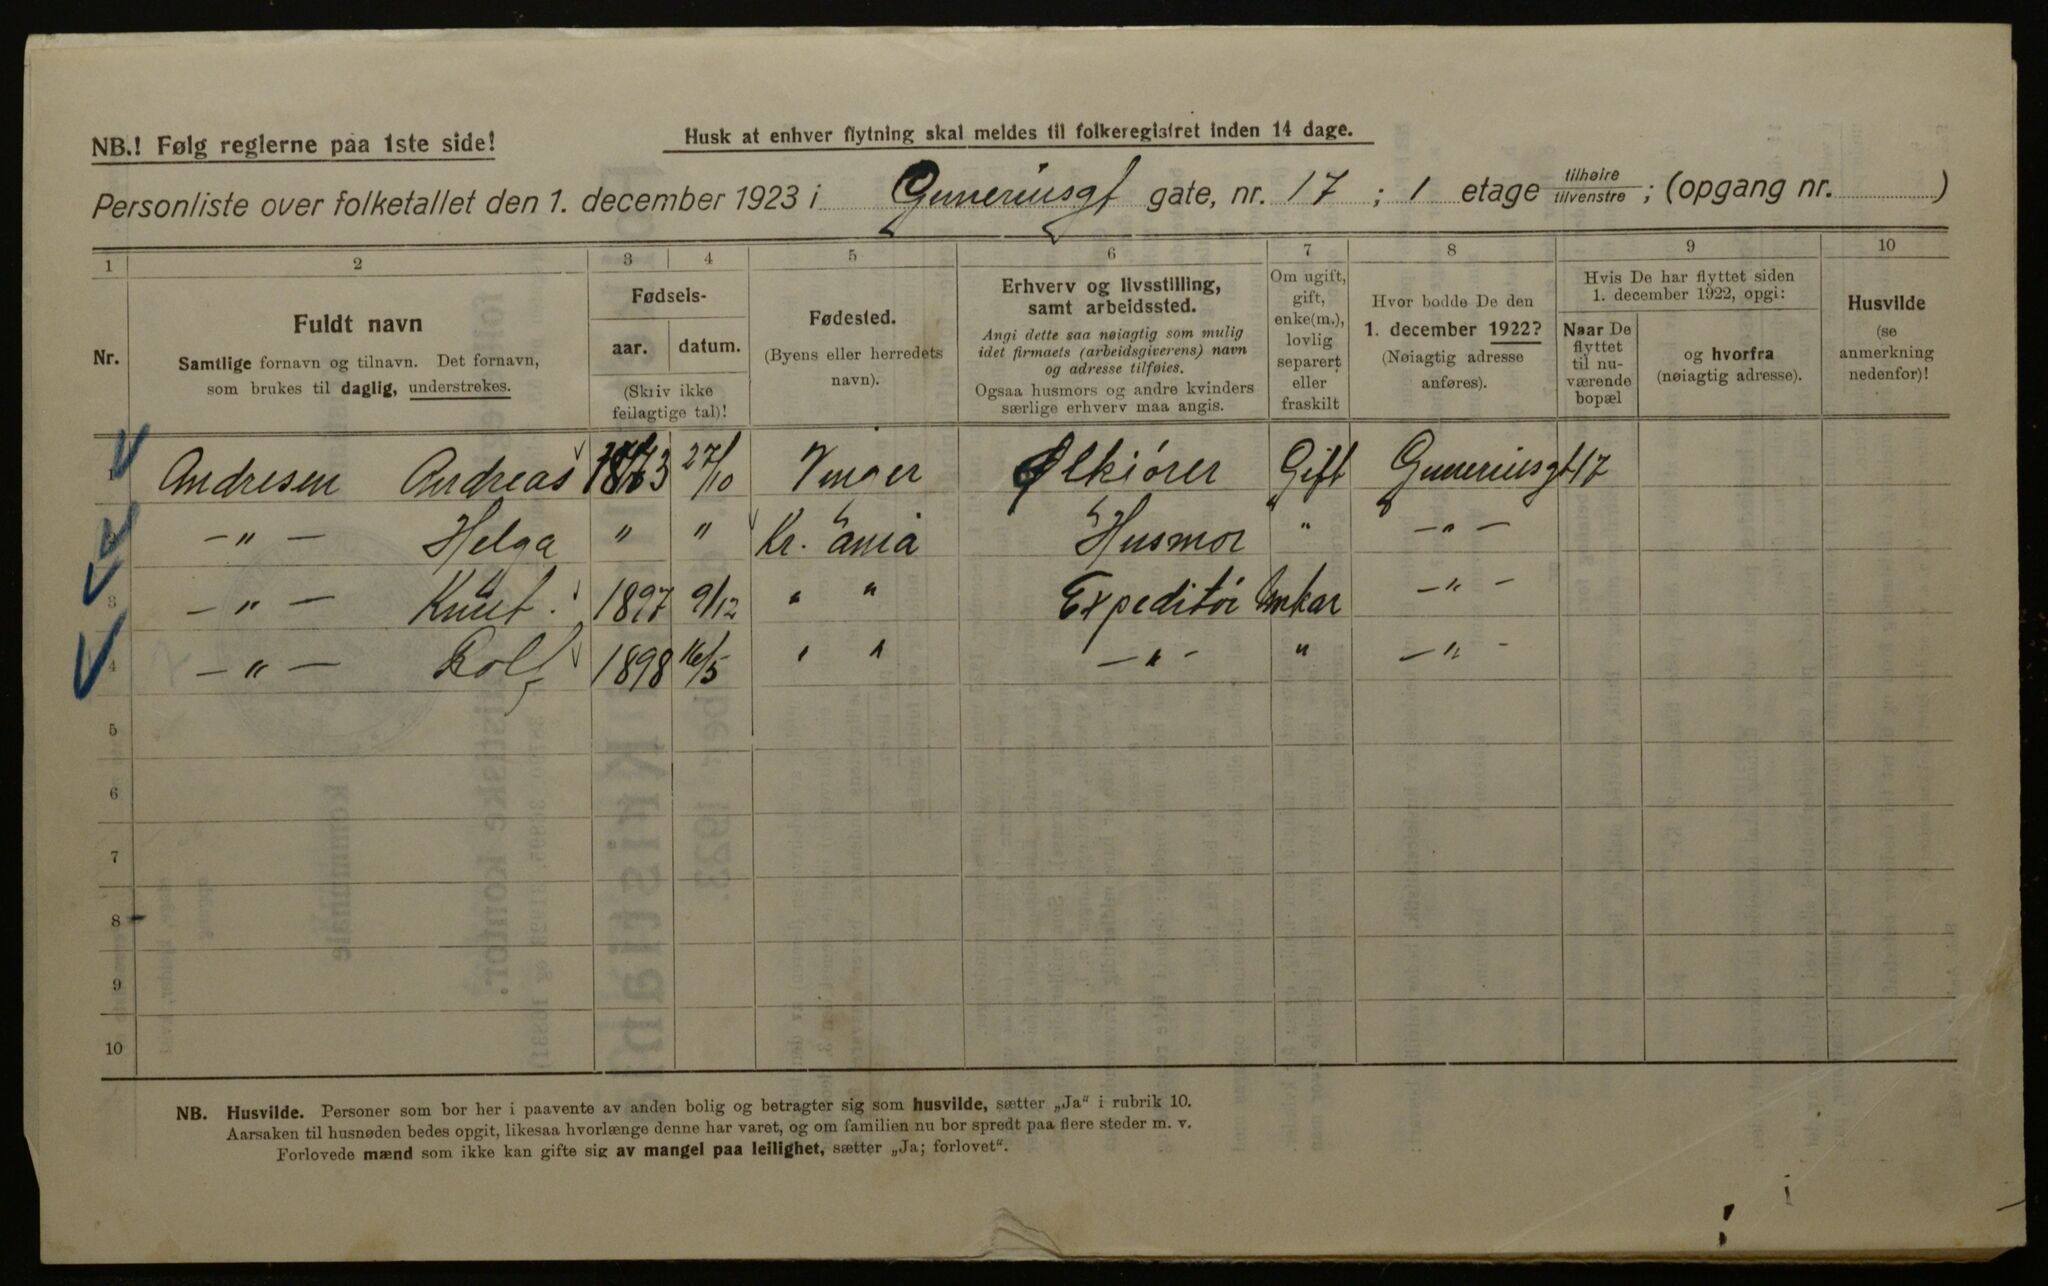 NB.! Følg reglerne paa 1ste side!
Husk at enhver flytning skal meldes til folkeregistret inden 14 dage.
Personliste over folketallet den 1. december 1923 i Gunneriusgt gate, nr. 17 ; 1 etage tilhøire tilvenstre ; (opgang nr. )
1 2 3 4 5 6 7 8 9 10
Nr.
Fuldt navn
Samtlige fornavn og tilnavn. Det fornavn,
som brukes til daglig, understrekes.
Fødsels-
aar. datum.
(Skriv ikke
feilagtige tal)!
Fødested.
(Byens eller herredets
navn).
Erhverv og livsstilling,
samt arbeidssted.
Angi dette saa nøiagtig som mulig
idet firmaets (arbeidsgiverens) navn
og adresse tilføies.
Ogsaa husmors og andre kvinders
særlige erhverv maa angis.
Om ugift,
gift,
enke(m.),
lovlig
separert
eller
fraskilt
Hvor bodde De den
1. december 1922?
(Nøiagtig adresse
anføres).
Hvis De har flyttet siden
1. december 1922, opgi:
Naar De
flyttet
til nu-
værende
bopæl
og hvorfra
(nøiagtig adresse).
Husvilde
(se
anmerkning
nedenfor)!
1 Andresen Andreas 1873 27/10 Vinger Ølkjører Gift Gunneriusgt 17
2 —„— Helga „ „ Kr. ania Husmor „ —„—
3 —„— Knut 1897 9/12 „ „ Expeditør Unkar —„—
4 —„— Rolf 1898 16/5 „ „ —„— „ —„—
5
6
7
8
9
10
NB. Husvilde. Personer som bor her i paavente av anden bolig og betragter sig som husvilde, sætter „Ja“ i rubrik 10.
Aarsaken til husnøden bedes opgit, likesaa hvorlænge denne har varet, og om familien nu bor spredt paa flere steder m. v.
Forlovede mænd som ikke kan gifte sig av mangel paa leilighet, sætter „Ja; forlovet“.